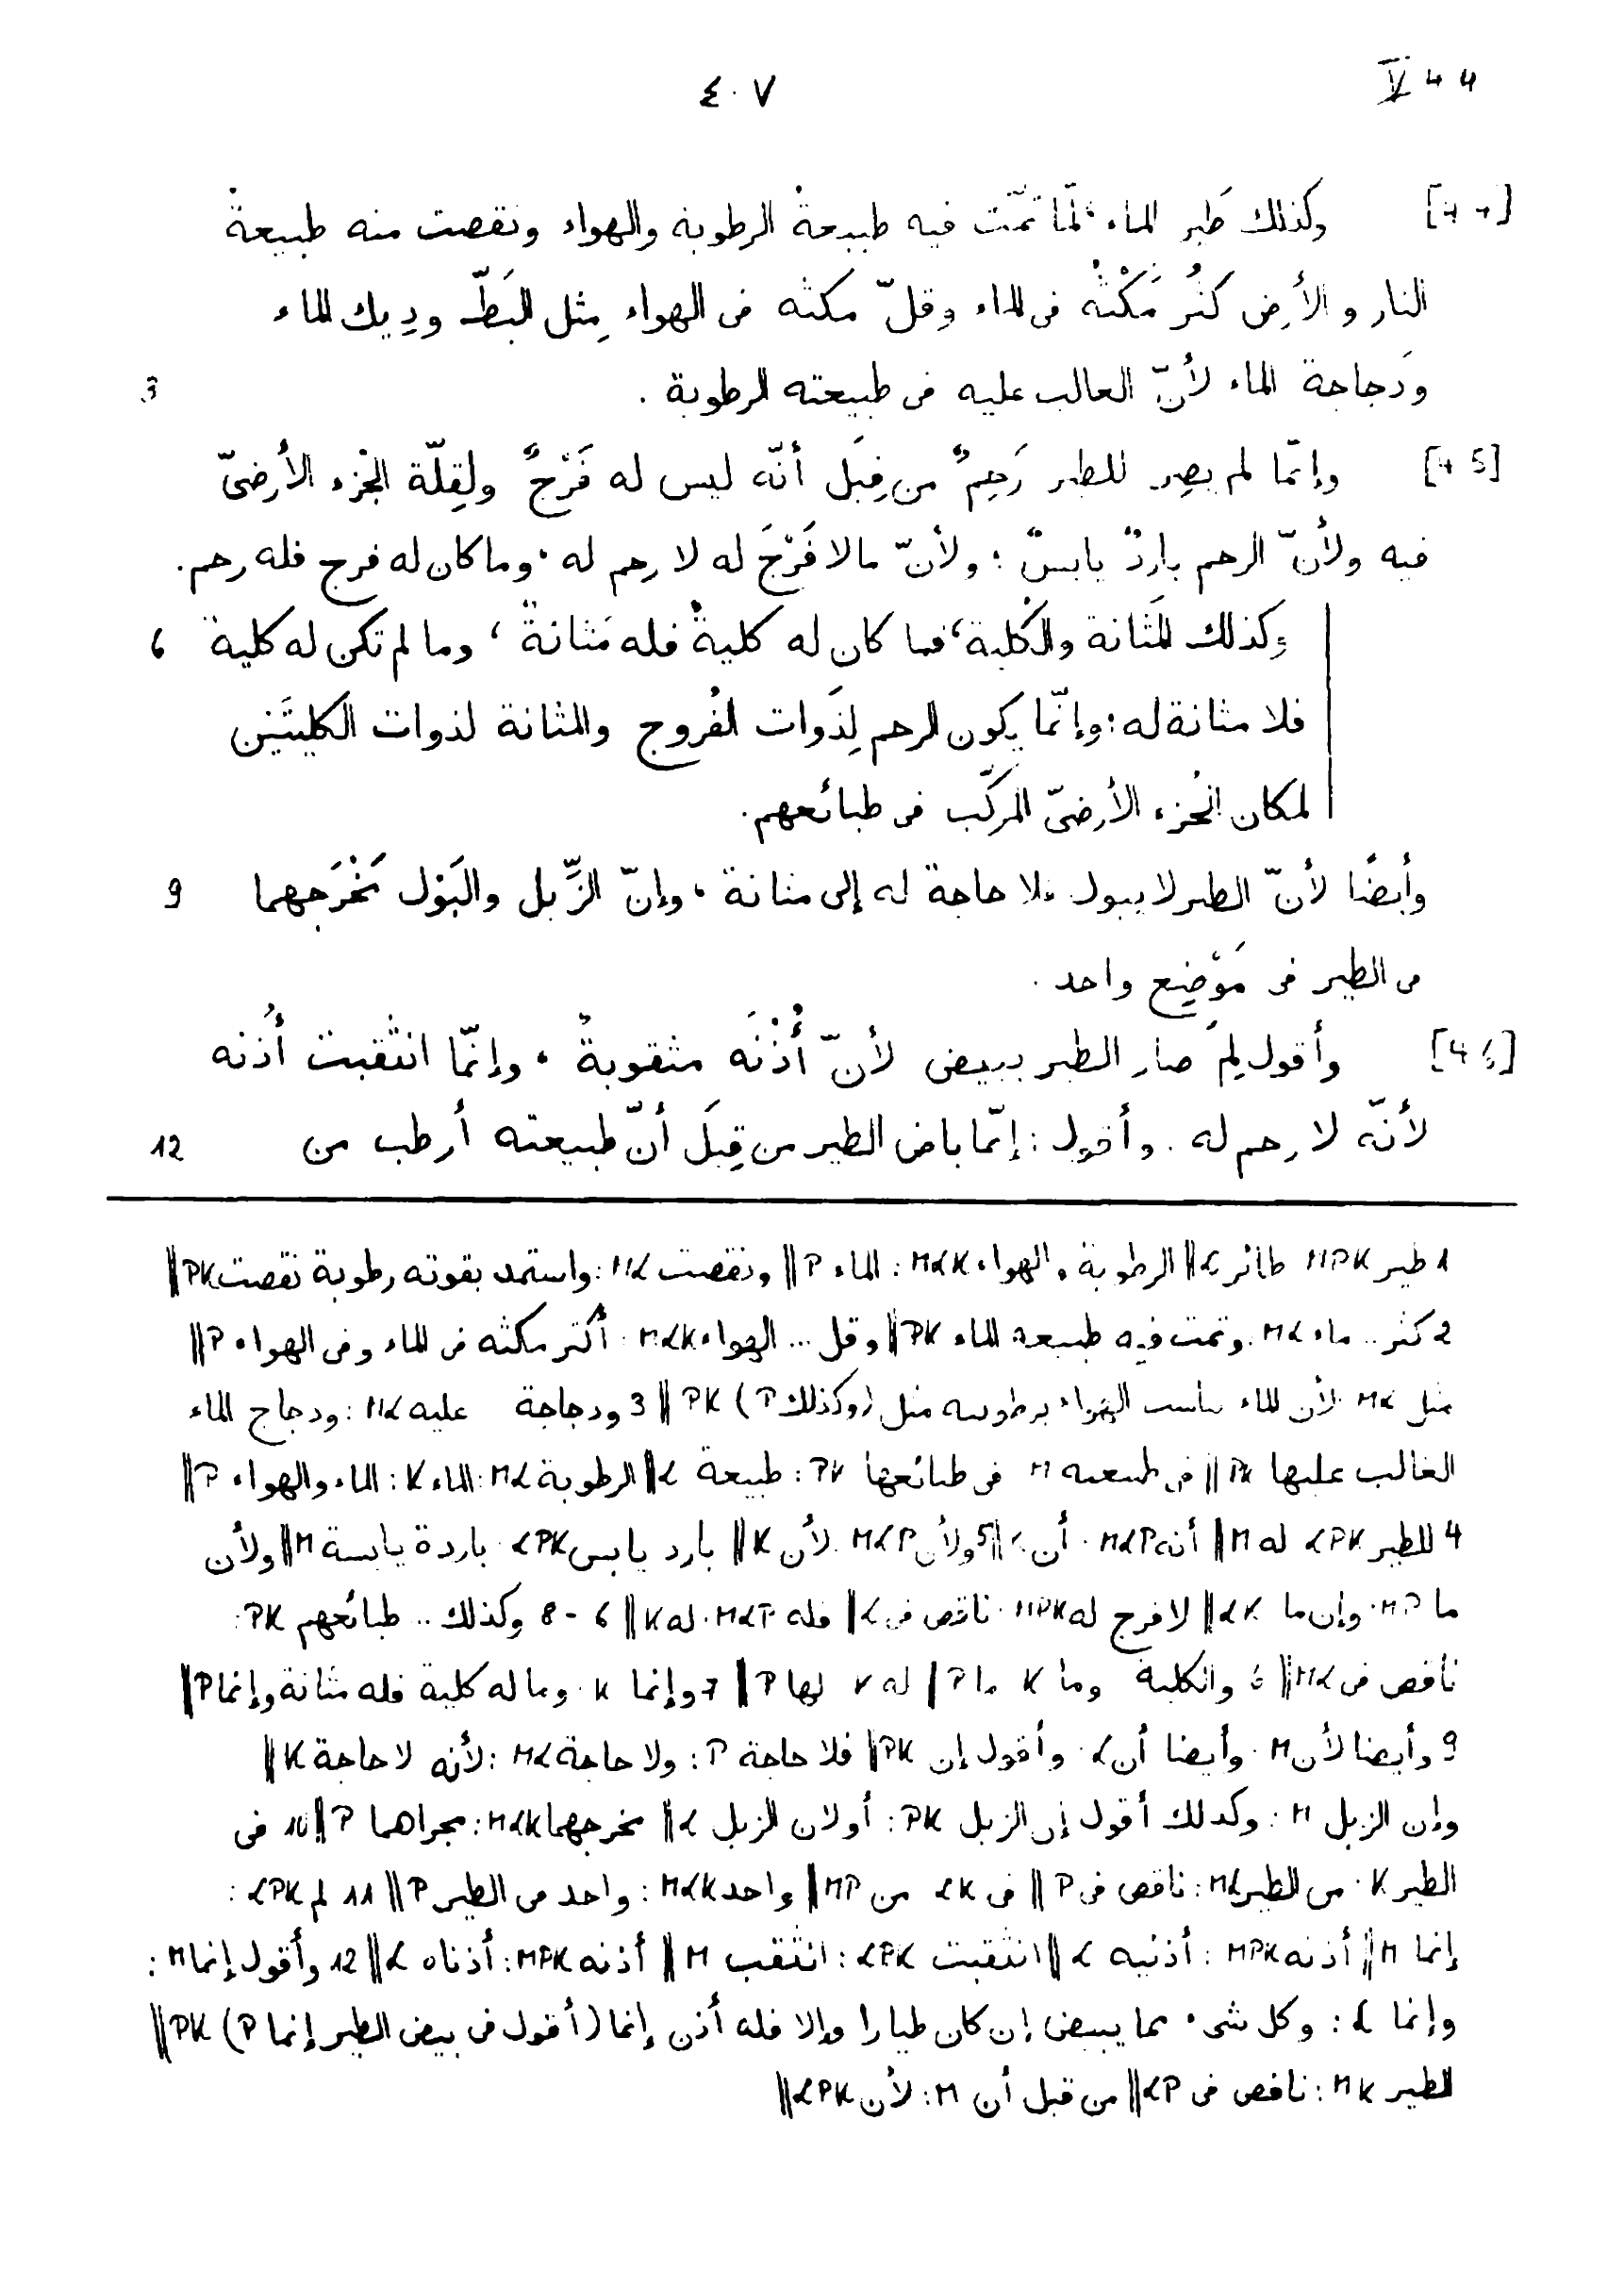 ٤٠٧
V 4 4
[44] وكذلك طَير الماء، لَمّا تَمَّت فيه طبيعةُ الرطوبة والهواء ونقصت منه طبيعةُ
النار والأرض كَثُر مَكْثُه فى الماء وقلّ مكثه فى الهواء مِثل البَطّ ودِيك الماء
ودَجاجة الماء لأنّ الغالب عليه فى طبيعته الرطوبة . 3
[45] وإنّما لم يصِر للطير رَحِمٌ من قِبَل أنّه ليس له فَرْجٌ ولِقِلّة الجُزء الأرضىّ
فيه ولأنّ الرحم باردٌ يابسٌ ؛ ولأنّ ما لا فَرْجَ له لا رحم له ، وما كان له فرج فله رحم .
وكذلك المَثانة والكُلية ، فما كان له كليةٌ فله مَثانةٌ ، وما لم تكن له كلية 6
فلا مثانة له ؛ وإنّما يكون الرحم لِذَوات الفُروج والمثانة لذوات الكليتَين
لمكان الجُزء الأرضىّ المركَّب فى طبائعهم .
وأيضًا لأنّ الطير لا يبول فلا حاجة له إلى مثانة ، وإنّ الزِّبل والبَوْل مَخْرَجهما 9
من الطير فى مَوْضِع واحد .
[46] وأقول لِمَ صار الطير يبيض لأنّ أُذْنَه مثقوبةُ ، وإنّما انثقبت أُذنه
لأنّه لا رحم له . وأقول : إنّما باض الطير من قِبَل أنّ طبيعته أرطب من 12
1 طير MPK طائر L || الرطوبة والهواء MLK : الماء P || ونقصت ML : واستمد بقوته رطوبة نقصت PK ||
2 كثر .. ماء ML . وتمت فيه طبيعة الماء PK || وقل ... الهواء MLK : أكثر مكثه فى الماء وفى الهواء P ||
مثل ML لأن الماء الهواء برطوبته مثل (وكذلك P) PK || 3 ودجاجة عليه ML : ودجاج الماء
الغالب عليها PK || فى طبيعته M فى طبائعها PK : طبيعة L || الرطوبة ML : الماء K : الماء والهواء P ||
4 للطير LPK له M || أنه MLP . أن K || 5 ولأن MLP . لأن K || بارد يابس LPK . باردة يابسة M || ولأن
ما MP . وإن ما LK || لا فرج له MPK . ناقص فى L || فله MLP . له K || 6 - 8 وكذلك .. طبائعهم PK :
ناقص فى ML || 6 والكلية وما K ما P || له K لها P || 7 وإنما K . وما له كلية فله مثانة وإنما P ||
9 وأيضا لأن M . وأيضا أن L . وأقول إن PK || فلا حاجة P : ولا حاجة ML : لأنه لا حاجة K ||
وإن الزبل M : وكذلك أقول إن الزبل PK : أو لان الزبل L || مخرجهما MLK : مجراهما P || 10 فى
الطير K . من الطير ML : ناقص فى P || فى LK من MP || واحد MLK : واحد من الطير P || 11 لم LPK :
إنما M || أذنه MPK : أذنيه L || انثقبت LPK : انثقب M || أذنه MPK : أذناه L || 12 وأقول إنما M :
وإنما L : وكل شىء مما يبيض إن كان طيارا وإلا فله أذن إنما (أقول فى بيض الطير إنما P) PK ||
الطير MK : ناقص فى LP || من قبل أن M : لأن LPK ||